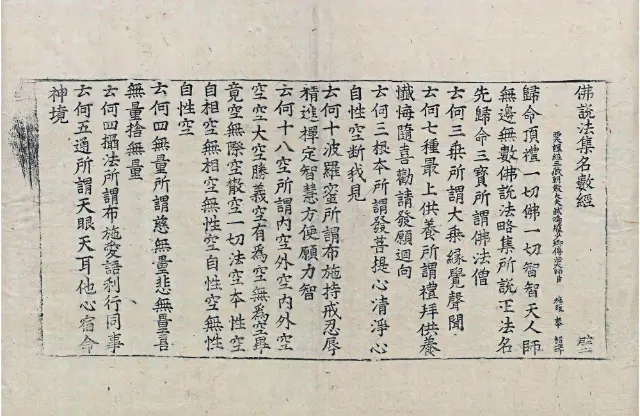 佛說法集名數經
歸命頂禮一切佛一切智智天人師
無邊無數佛說法略集所說正法名
先歸命三寶所謂佛法僧
云何三乘所謂大乘緣覺聲聞
云何七種最上供養所謂禮拜供養
懺悔隨喜勸請發願迴向
云何三根本所謂發菩提心清淨心
自性空斷我見
云何十波羅蜜所謂布施持戒忍辱
精進禪定智慧方便願力智
云何十八空所謂內空外空內外空
空空大空勝義空有為空無為空畢
竟空無際空散空一切法空本性空
自相空無相空無性空自性空無性
自性空
云何四無量所謂慈無量悲無量喜
無量捨無量
云何四攝法所謂布施愛語利行同事
云何五通所謂天眼天耳他心宿命
神境